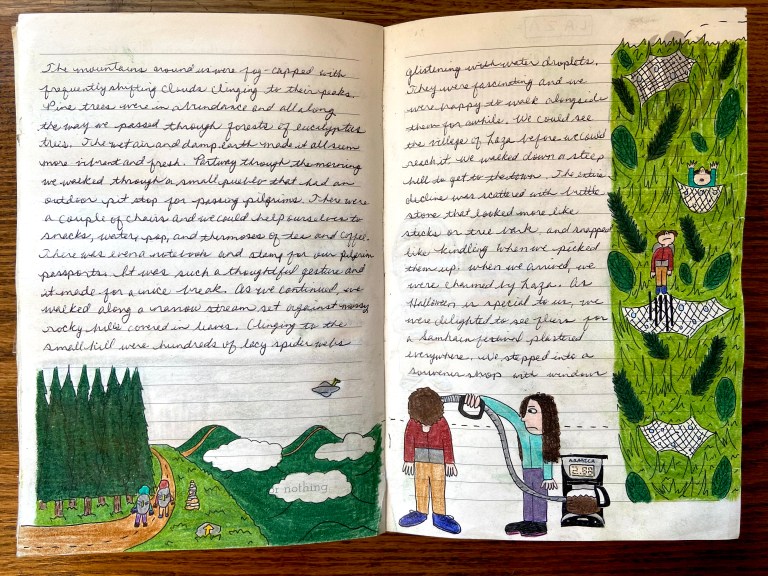 The mountains around us were fog-capped with
frequently shifting clouds clinging to their peaks.
Pine trees were in abundance and all along
the way we passed through forests of eucalyptus
trees. The wet air and damp earth made it all seem
more vibrant and fresh. Partway through the morning
we walked through a small pueblo that had an
outdoor pit stop for passing pilgrims. There were
a couple of chairs and we could help ourselves to
snacks, water, pop, and thermoses of tea and coffee.
There was even a notebook and stamp for our pilgrim
passports. It was such a thoughtful gesture and
it made for a nice break. As we continued we
walked along a narrow stream set against
rocky hills covered in leaves. Clinging to the
small hill were hundreds of lacy spider webs
or nothing
glistening with water droplets.
They were fascinating and we
were happy to walk alongside
them for awhile. We could see
the village of Laza before we could
reach it we walked down a steep
hill to get to the town. The entire
decline was scattered with brittle
stone that looked more like
sticks or tree bark and snapped
like kindling when we picked
them up. When we arrived, we
were charmed by Laza. As
Halloween is special to us, we
were delighted to see fliers for
a Samhain festival plastered
everywhere. We stepped into a
souvenir shop with window
ARABICA